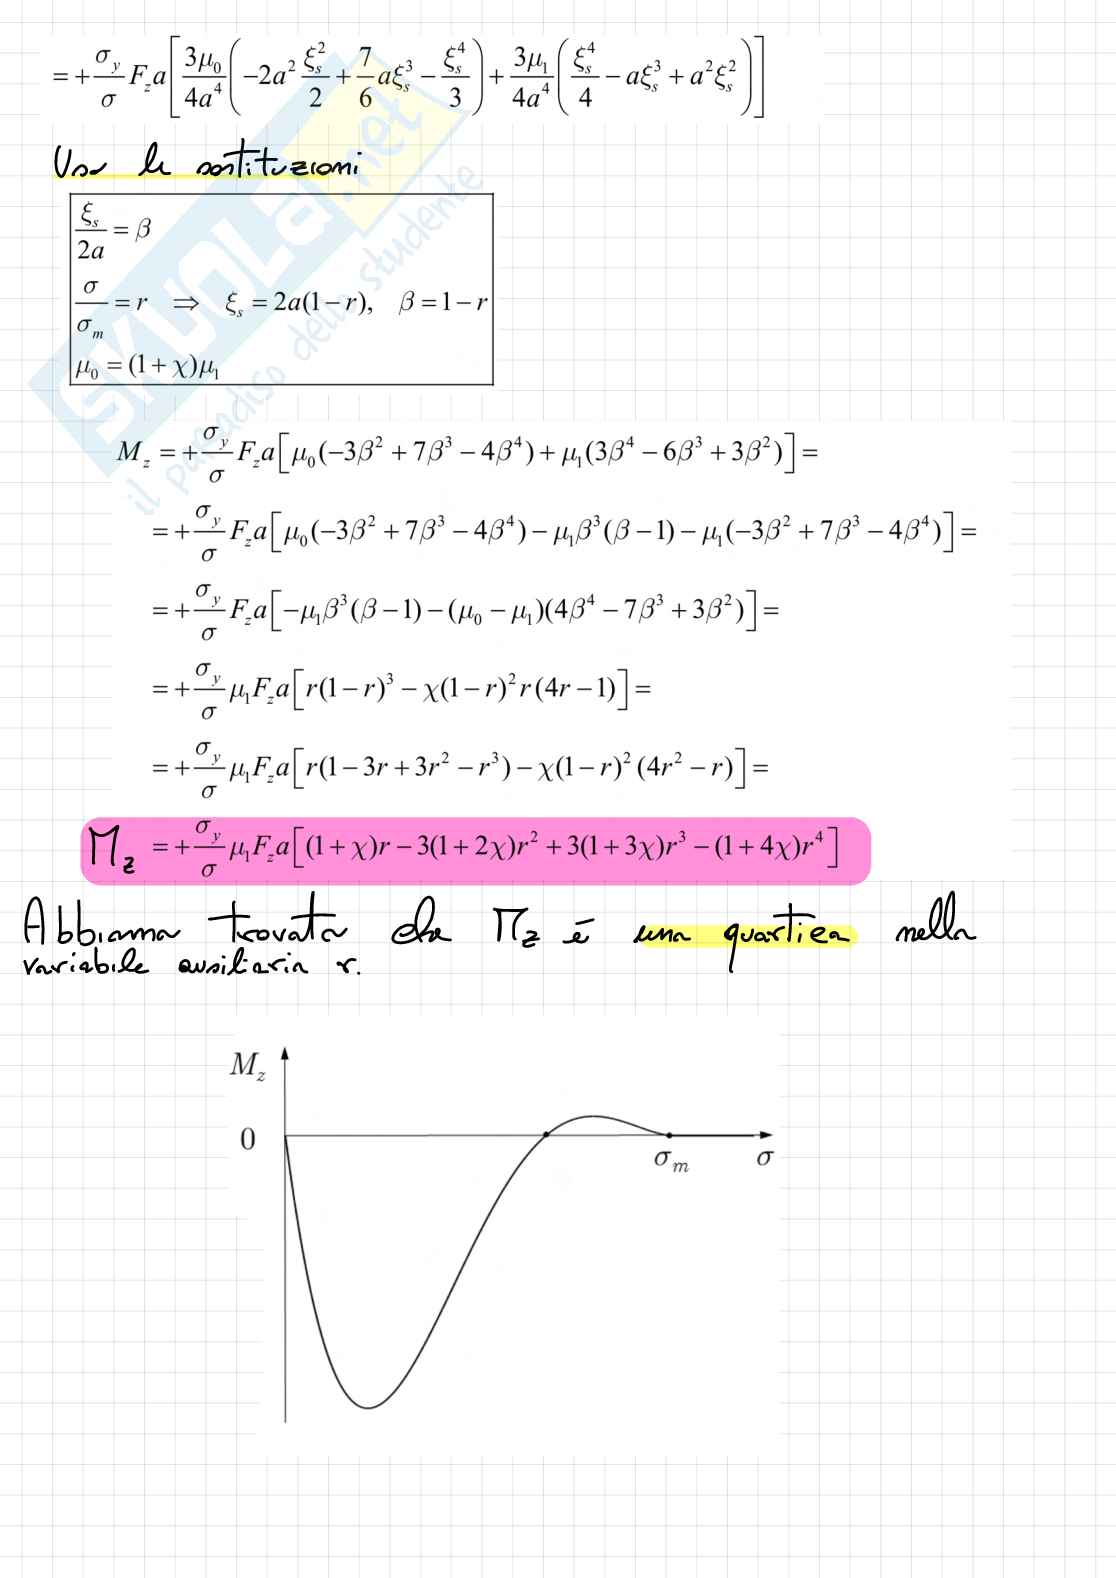 = +\frac{σ_y}{σ} F_z a [ \frac{3μ_0}{4a^4} ( -2a^2 \frac{ξ_s^2}{2} + \frac{7}{6} aξ_s^3 - \frac{ξ_s^4}{3} ) + \frac{3μ_1}{4a^4} ( \frac{ξ_s^4}{4} - aξ_s^3 + a^2ξ_s^2 ) ]
Uso le sostituzioni
\frac{ξ_s}{2a} = β
\frac{σ}{σ_m} = r ⇒ ξ_s = 2a(1-r), β = 1-r
μ_0 = (1+χ)μ_1
M_z = +\frac{σ_y}{σ} F_z a [ μ_0(-3β^2 + 7β^3 - 4β^4) + μ_1(3β^4 - 6β^3 + 3β^2) ] =
= +\frac{σ_y}{σ} F_z a [ μ_0(-3β^2 + 7β^3 - 4β^4) - μ_1β^3(β-1) - μ_1(-3β^2 + 7β^3 - 4β^4) ] =
= +\frac{σ_y}{σ} F_z a [ -μ_1β^3(β-1) - (μ_0 - μ_1)(4β^4 - 7β^3 + 3β^2) ] =
= +\frac{σ_y}{σ} μ_1 F_z a [ r(1-r)^3 - χ(1-r)^2 r(4r-1) ] =
= +\frac{σ_y}{σ} μ_1 F_z a [ r(1-3r+3r^2-r^3) - χ(1-r)^2 (4r^2-r) ] =
M_z = +\frac{σ_y}{σ} μ_1 F_z a [ (1+χ)r - 3(1+2χ)r^2 + 3(1+3χ)r^3 - (1+4χ)r^4 ]
Abbiamo trovato che M_z è una quartica nella
variabile ausiliaria r.
M_z
0
σ_m σ
SKUOLA.net
il paradiso dello studente